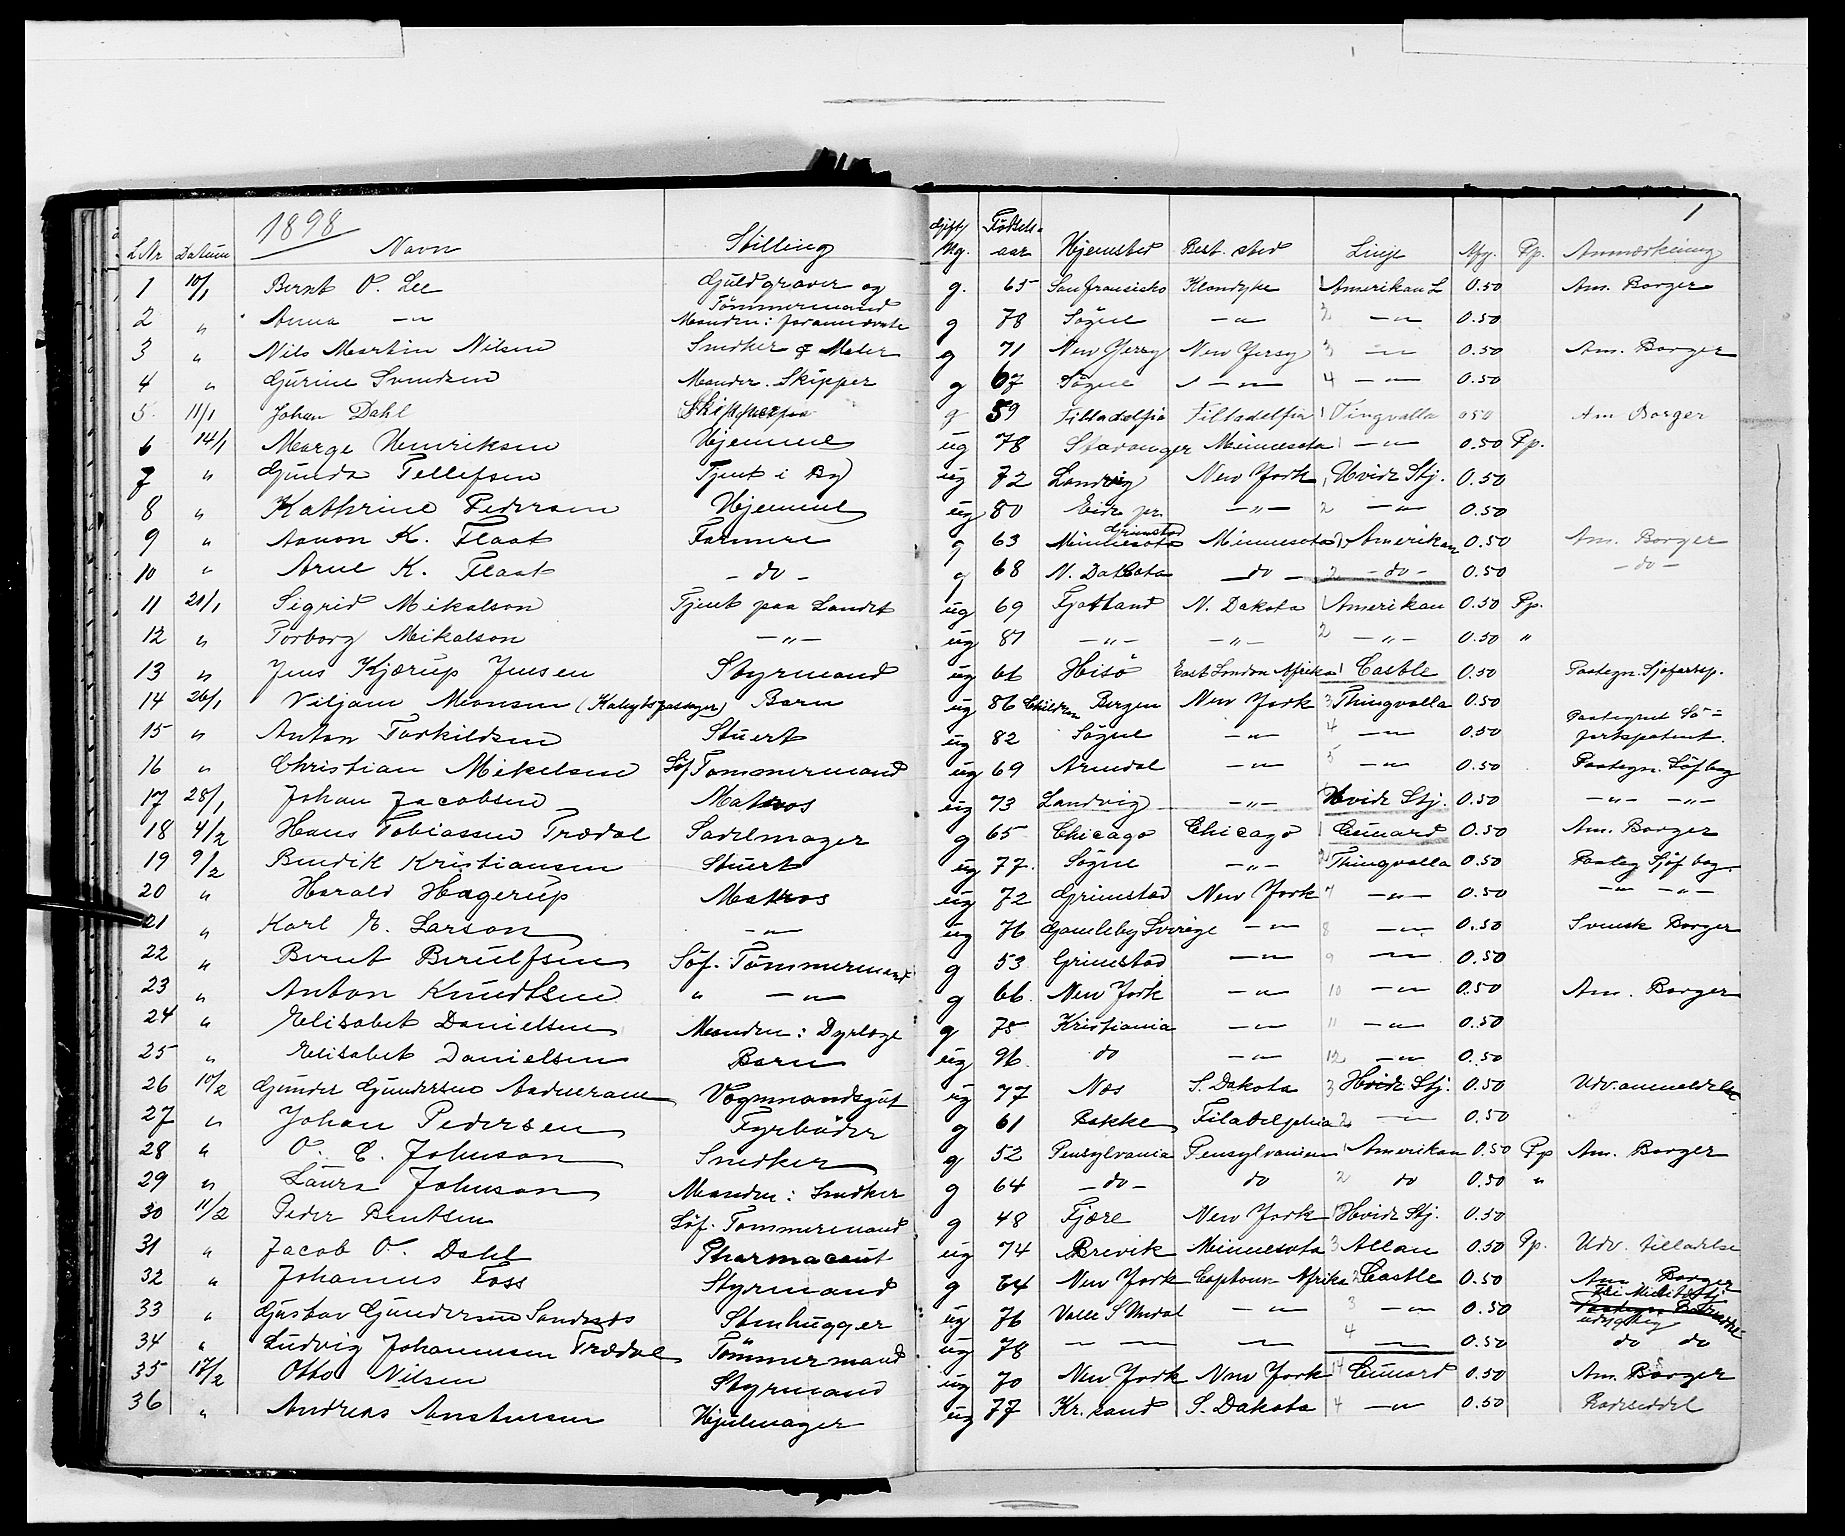 1898 1
L.Nr Datum Navn Stilling Gift/Ug. Fødsels-aar Hjemsted Best. sted Linje Afg. Pp. Anmærkning
1 10/1 Bernt O. Lee Guldgraver og Tömmermand g. 65 San Fransisko Klondyke 1 Amerikan L 0.50 Am. Borger
2 " Anna —"— Manden: forannævnte g 78 Sögne —"— 2 —"— 0.50
3 " Nils Martin Nilsen Snedker & Maler g 71 New Yersy New Yersy 3 —"— 0.50 Am. Borger
4 " Gurine Svendsen Manden. Skipper g 67 Sögne —"— 4 —"— 0.50
5 11/1 Johan Dahl g 59 Filladelfia Filladelfia 1 Tingvalla 0.50 Am Borger
6 14/1 Marge Henriksen Hjemme ug 78 Stavanger Minnesota 1 —"— 0.50 Pp.
7 " Gunda Tellefsen Tjent i By ug 72 Landvig New York 1 Hvide Stj. 0.50
8 " Kathrine Pedersen Hjemme ug 80 Eide pr. Grimstad —"— 2 —"— 0.50
9 " Aanon K. Flaat Farmere g 63 Minnesota Minnesota 1 Amerikan 0.50 Am. Borger
10 " Arne K. Flaat - do - g 68 N. Dakota — do — 2 - do - 0.50 - do -
11 21/1 Sigrid Mikalson Tjent paa Landet ug 69 Fjotland N. Dakota 1 Amerikan 0.50 Pp.
12 " Torborg Mikalson —"— ug 81 —"— —"— 2 —"— 0.50 "
13 " Jens Kjærup Jensen Styrmand ug 66 Hisö East London Afrika 1 Castle 0.50 Paategn. Sjøfartsp.
14 26/1 Viljam Monsen (Kahytspassager) Barn ug 86 Children Bergen New York 3 Thingvalla 0.50
15 " Anton Torkildsen Stuert ug 82 Sögne —"— 4 —"— 0.50 Paategnet Sö=fartspatent.
16 " Christian Mikelsen Söf Tømmermand ug 69 Arendal —"— 5 —"— 0.50 Paategn. Söf bog
17 28/1 Johan Jacobsen Matros ug 73 Landvig —"— Hvide Stj. 0.50 —"— —"—
18 4/2 Hans Tobiassen Trædal Sadelmager g 65 Chicago Chicago 1 Cunard 0.50 Am. Borger
19 9/2 Bendik Kristiansen Stuert ug 77. Sögne —"— Thingvalla 0.50 Paateg Sjöf bog.
20 " Harald Hagerup Matros ug 72 Grimstad New York 7 —"— 0.50 —"— —"—
21 " Karl E. Larson —"— ug 76 Gamleby Sverige —"— 8 —"— 0.50 Svensk Borger
22 " Bernt Berulfsen Söf. Tömmermand g 53 Grimstad —"— 9 —"— 0.50
23 " Anton Knudtsen " —"— g 66 New York —"— 10 —"— 0.50 Am. Borger
24 " Elisabet Danielsen Manden: Dyrlæge g 75 Kristiania —"— 11 —"— 0.50
25 " Elisabet Danielsen Barn ug 96 do —"— 12 —"— 0.50
26 10/2 Gunder Gundersen ug 77 Næs S. Dakota 3 Hvide Stj. 0.50 Udv. anmeldelse
27 " Johan Pedersen Fyrböder g 61 Bakke Filadelphia 2 —"— 0.50
28 " O. C. Johnson Snedker g 52 Pensylvania Pensylvanien 1 Amerikan 0.50 Pp Am. Borger
29 " Laura Johnson Manden: Snedker g 64 - do - do 2 do 0.50 "
30 11/2 Peder Bentsen Söf. Tømmermand g 48 Fjære New York 1 Hvide Stj. 0.50
31 " Jacob O. Dahl Pharmaceut ug 74 Brevik Minnesota 3 Allan 0.50 Pp. Udv. tilladelse
32 " Johannes Foss Styrmand g 64 New York Captown Afrika 2 Castle 0.50 Am Borger
33 " Gustav Gundersen Stenhugger ug 76 Valle S Undal —"— 3 —"— 0.50
34 " Ludvig Johannessen Trædal Tömmermand ug 78 — — — 4 — 0.50 do do
35 17/2 Otto Nilsen Styrmand ug 70 New York New York 14 Cunard 0.50 Am. Borger
36 " Andreas Anstensen Hjulmager ug 77 Kr. sand S. Dakota 4 —"— 0.50 Rodeseddel